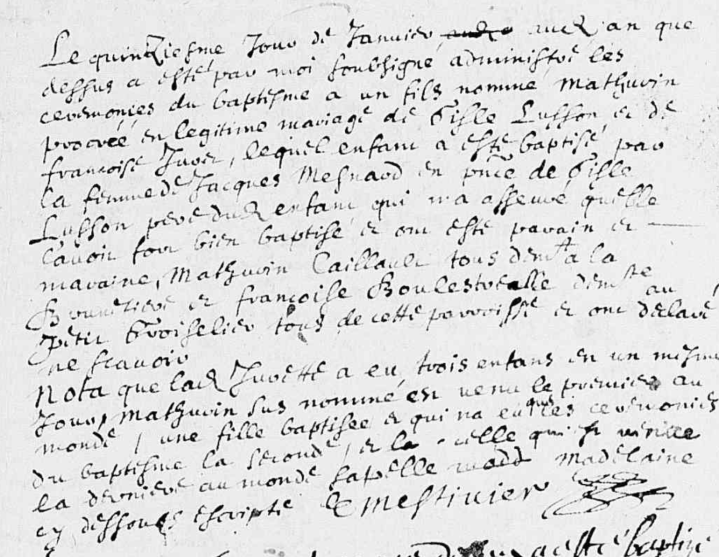 Le quinziesme Jour de Janvier audit an que
dessus a esté par moi soubsigné administré les
ceremonies du baptisme a un fils nommé Mathurin
procreé en legitime mariage de Gisle Lusson et de
françoise Juver, lequel enfant a esté baptisé par
la femme de Jacques Mesnard en pnce de Gisle
Lusson pere dudit enfant qui m'a asseuré quelle
l'avoit fort bien baptisé et ont esté parain et
maraine, Mathurin Caillault tous demt a la
et françoise demte au
petit Groiselier tous de cette parroisse et ont declaré
ne scavoir
Nota que lad Juvette a eu trois enfans en un mesme
Jour, Mathurin sus nommé est venu le premier au
monde, une fille baptisee et qui na eu que les ceremonies
du baptisme la seconde, et la celle qui
la derniere au monde sapelle Madelaine
cy dessous escripte Mestivier
esté baptizé